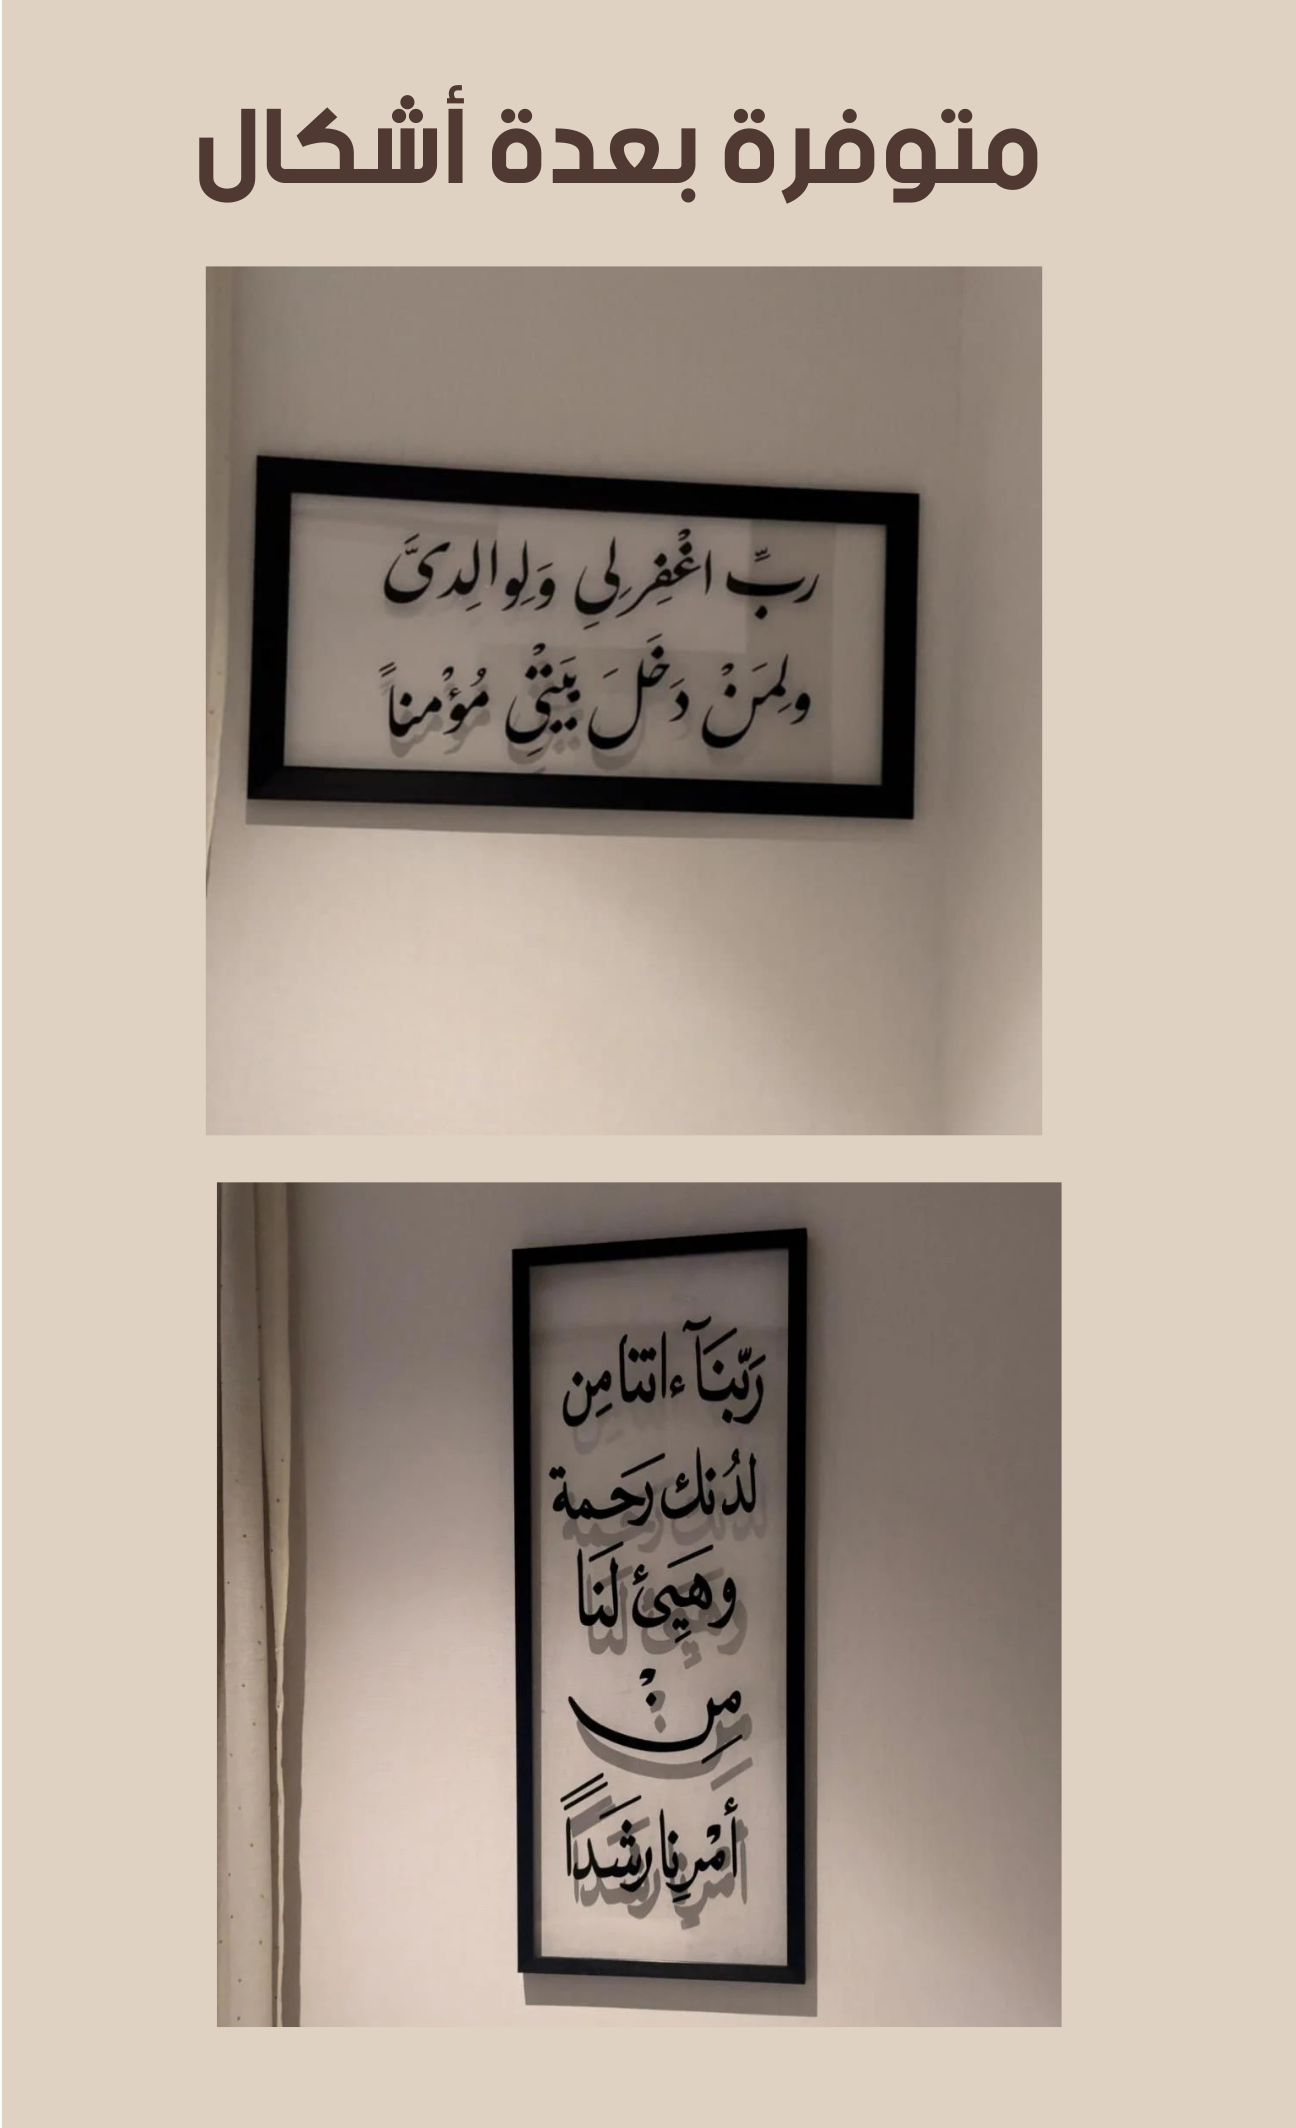 متوفرة بعدة أشكال
ربِّ اغْفِرلِي وَلِوالِدىَّ
ولِمَنْ دَخَلَ بَيْتِي مُؤْمناً
رَبّنَآ ءاتنا مِن
لدُنك رَحَمة
وهَيِئ لَنَا
مِنْ
أمْرِنا رشَداً